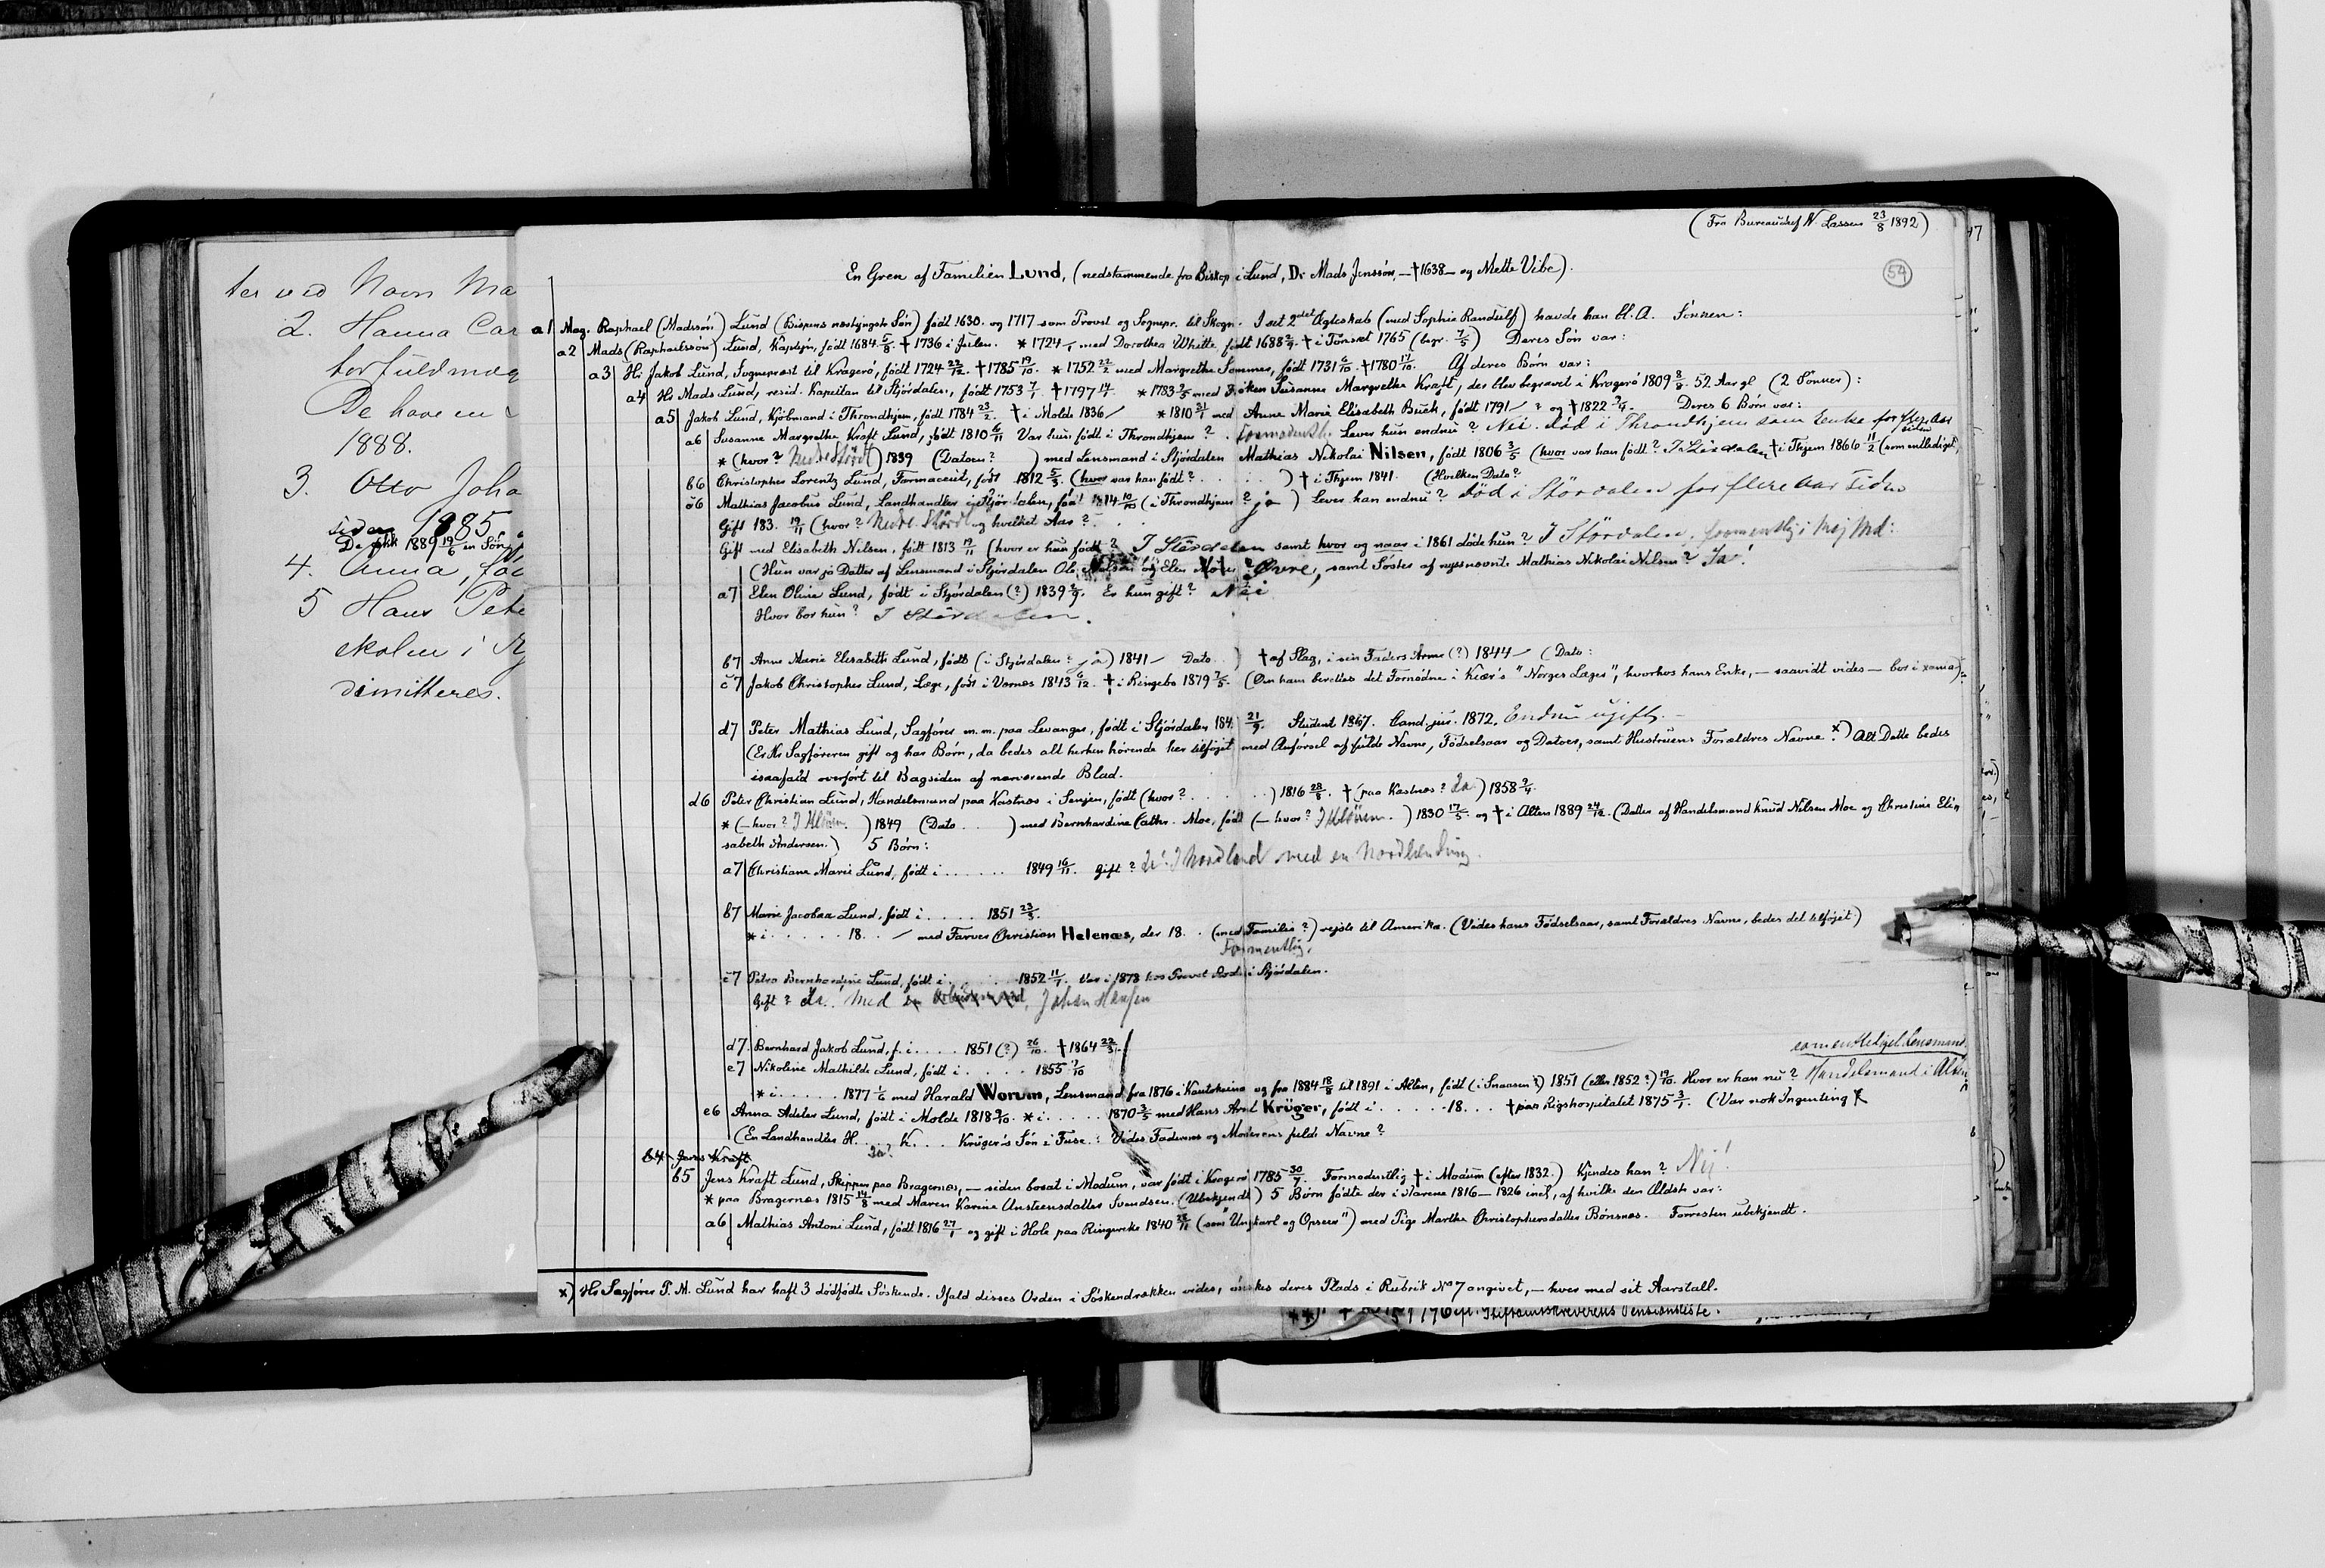 ter ved Navn Ma
2. Hanna Car
torfuldmæg
De have en
1888.
3. Otto Joha
siden 1885.
De fik 1889 19/6 en Søn
4. Anna, fød
5 Hans Pete
skolen i
dimitteres.
(Fra Bureauchef N. Lassen 23/8 1892)
47
54
En Gren af Familien Lund, (nedstammende fra Biskop i Lund, Dr Mads Jenssön, — †1638 — og Mette Vibe).
a1 Mag. Raphael (Madssön) Lund (Bispens næstyngste Søn) født 1630. og 1717 som Provst og Sognepr. til Skogn. I set 2det Ægteskab (med Sophie Randulf) havde han bl. A. Sønnen:
a2 Mads (Raphaelssön) Lund, Kaptejn, født 1684 5/8. † 1736 i Julen. * 1724 med Dorothea White, født 1688 † i Tønset 1765 (begr. 7/5) Deres Søn var:
a3 Hr Jakob Lund, Sognepræst til Kragerø, født 1724 22/12. † 1785 19/10. * 1752 22/2 med Margrethe Sommer, født 1731 6/10. † 1780 17/10. Af deres Børn var:
a4 Hr Mads Lund, resid. Kapellan til Stjørdalen, født 1753 7/1 † 1797 14/4. * 1783 2/5 med Frøken Susanne Margrethe Kraft, der blev begravet i Kragerø 1809 8/8. 52 Aar gl (2 Sønner):
a5 Jakob Lund, Kjøbmand i Throndhjem, født 1784 23/2. † i Molde 1836 * 1810 21/1 med Anne Marie Elisabeth Buch, født 1791 ? og † 1822 3/4. Deres 6 Børn var:
a6 Susanne Margrethe Kraft Lund, født 1810 6/11 Var hun født i Throndhjem? formodentlig Lever hun endnu? Nei. død i Throndhjem som Enke for flere Aar siden
* (hvor? Nedre Stjørd) 1839 (Datoen? ) med Lensmand i Stjørdalen Mathias Nikolai Nilsen, født 1806 3/5 (hvor var han født? I Stördalen † i Thjem 1866 11/2 (som entlediget)
b6 Christopher Lorentz Lund, Farmaceut, født 1812 5/3. (hvor var han født? . . . . ) † i Thjem 1841. (Hvilken Dato?
c6 Mathias Jacobus Lund, Landhandler i Stjørdalen, født 1814 10/10 (i Throndhjem? ja ) Lever han endnu? død i Stördalen for flere aar siden
Gift 183. 19/11 (hvor? Nedre Störd og hvilket Aar?
Gift med Elisabeth Nilsen, født 1813 19/11 (hvor er hun født? I Stördalen samt hvor og naar i 1861 døde hun? I Stördalen, formentlig i Maj Md:
(Hun var jo Datter af Lensmand i Stjørdalen Ole Nilsen og Elen Øvre, samt Søster af nyssnævnte Mathias Nikolai Nilsen? Ja!
a7 Elen Olivia Lund, født i Stjørdalen (?) 1839 2/9. Er hun gift? Nei
Hvor bor hun? I Stördalen.
b7 Anne Marie Elisabeth Lund, født (i Stjørdalen? ja) 1841 — Dato. ) † af Slag, i sin Faders Arme (?) 1844 — (Dato:
c7 Jakob Christopher Lund, Læge, født i Værnes 1843 6/12. † i Ringebo 1879 7/5. (Om ham berettes det Fornødne i Kiær's "Norges Læger", hvorhos hans Enke, — saavidt vides — bor i Xania).
d7 Peter Mathias Lund, Sagfører m.m. paa Levanger, født i Stjørdalen 184. 21/9. Student 1867. Cand. jur. 1872. Endnu ugift. —
(Er Hr Sagføreren gift og har Børn, da bedes alt herhen hørende her tilføjet med Anførsel af fulde Navne, Fødselsaar og Datoer, samt Hustruens Forældres Navne. x) Alt Dette bedes
isaafald overført til Bagsiden af nærværende Blad.
d6 Peter Christian Lund, Handelsmand paa Kastnæs i Senjen, født (hvor? . . . . ) 1816 28/8. † (paa Kastnæs? Ja) 1858 2/4.
* (— hvor? ) 1849 (Dato . . ) med Bernhardine Cathr. Moe, født (— hvor? ) 1830 17/5. og † i Alten 1889 24/12. (Datter af Handelsmand Knud Nilsen Moe og Christine Eli-
sabeth Andersen.) 5 Børn:
a7 Christiane Marie Lund, født i . . . . . . 1849 16/11. Gift? Ja! I Nordland med en Nordlænding.
b7 Marie Jacobæa Lund, født i . . . . . 1851 23/5.
* i . . . . . 18. . — med Farver Christian Helenæs, der 18. . (med Familie?) rejste til Amerika. (Vides hans Fødselsaar, samt Forældres Navne, bedes det tilføjet.)
Formentlig.
c7 Petra Bernhardine Lund, født i . . . . . 1852 11/1. Var i 1873 hos Provst i Stjørdalen.
Gift? Ja. Med en Johan Hansen
d7. Bernhard Jakob Lund, f. i . . . . 1851 (?) 26/10. † 1864 22/3.
e7 Nikoline Mathilde Lund, født i . . . . . 1855 7/10
* i . . . . . 1877 1/6 med Harald Worum, Lensmand fra 1876 i Kautokeino og fra 1884 18/8 til 1891 i Alten, født (i Snaasen?) 1851 (eller 1852?) 19/10. Hvor er han nu? Handelsmand i Alten
som entlediget Lensmand.
e6 Anna Adsler Lund, født i Molde 1818 2/10. * i . . . . . 1870 3/5 med Hans Arnt Krüger, født i . . . . . 18. . . † paa Rigshospitalet 1875 3/1. (Var nok Ingenting
(En Landhandler H. . . . K. . . . Krüger's Søn i Fuse.: Vides Faderens og Moderens fulde Navne?
b4 Jens Kraft
b5 Jens Kraft Lund, Skipper paa Bragernæs, — siden bosat i Modum, var født i Kragerø 1785 30/7. Formodentlig † i Modum (efter 1832.) Kjendes han? Nei!
* paa Bragernæs 1815 14/8 med Maren Karine Ansteensdatter Svendsen. (Ubekjendt) 5 Børn fødte der i Aarene 1816 — 1826 incl., af hvilke den Ældste var:
a6 Mathias Antoni Lund, født 1816 27/1 og gift i Hole paa Ringerike 1840 (som "Ungkarl og Opseer") med Pige Marthe Christophersdatter Bønsnæs. Forresten ubekjendt.
x) Hr Sagfører P. M. Lund har haft 3 dødfødte Søskende. Ifald disses Orden i Søskendrækken vides, ønskes deres Plads i Rubrik No 7 angivet, — hver med sit Aarstall.
1796 Stiftamtskreverens Pensionsliste.